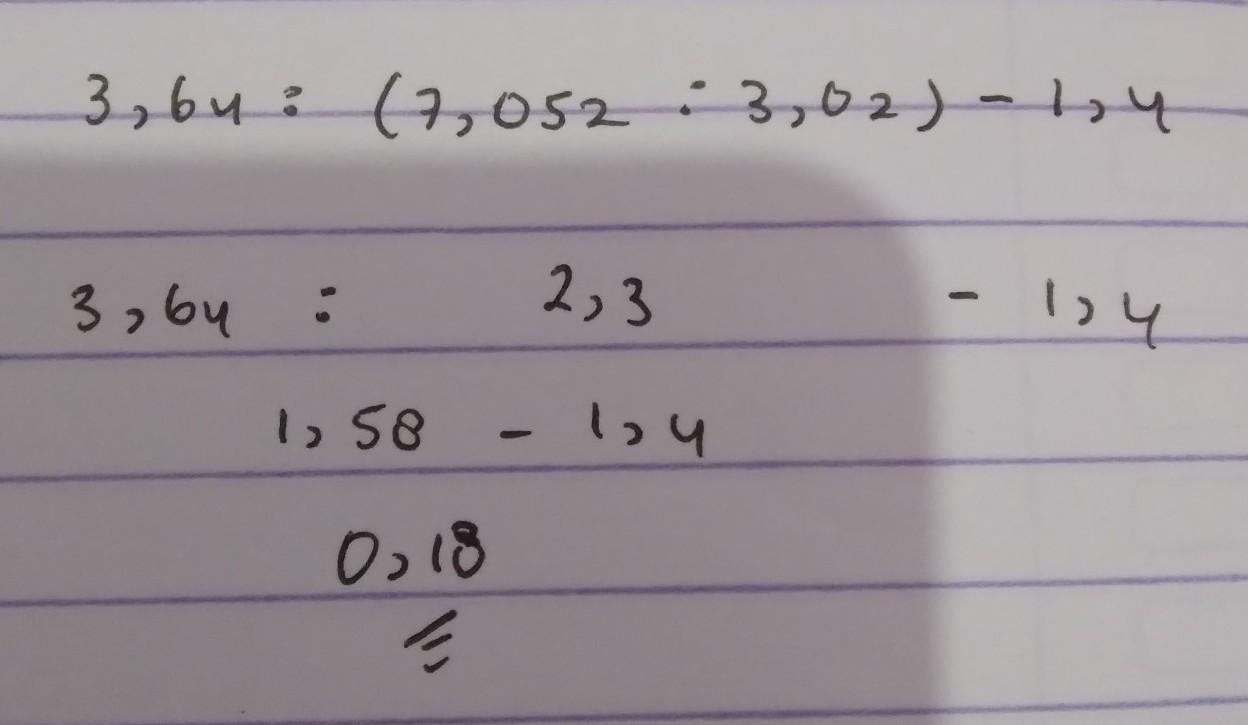 3,64 : (7,052 : 3,02) - 1,4
3,64 : 2,3 - 1,4
1,58 - 1,4
0,18